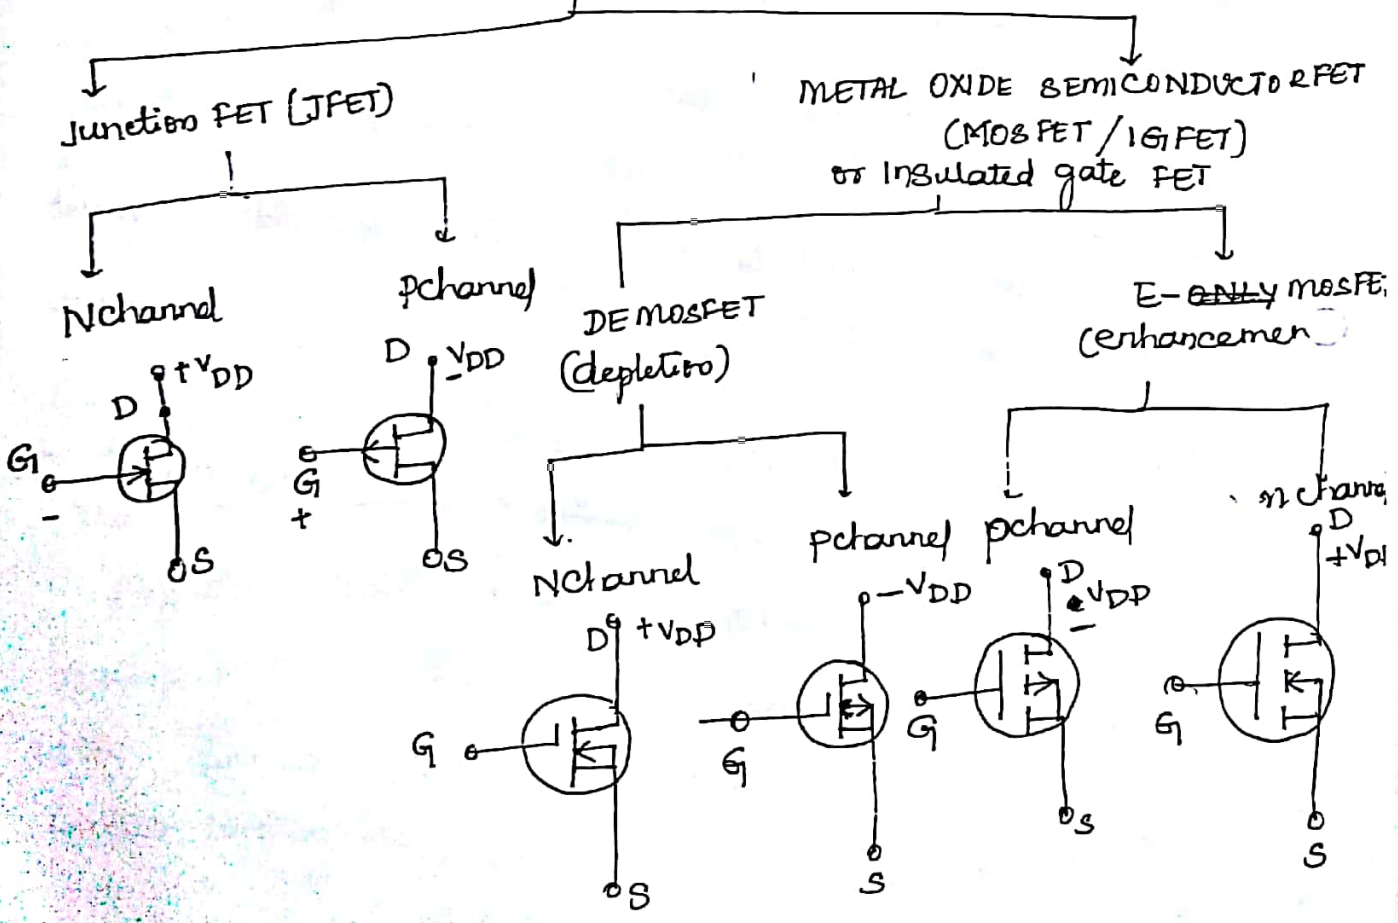 Junction FET (JFET)
METAL OXIDE SEMICONDUCTOR FET
(MOSFET / IGFET)
or Insulated gate FET
Nchannel
Pchannel
DE MOSFET
(depletion)
E-ONLY MOSFE
(enhancemen
D
+VDD
G
-
S
D
-VDD
G
+
S
Nchannel
D
+VDD
G
S
Pchannel
-VDD
G
S
pchannel
D
-VDD
G
S
n chann
D
+VD
G
S